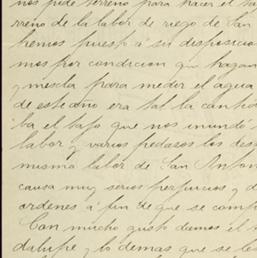 nos pide terreno para hacer el
rreno de la labor de riego de San
hemos puesto á su disposicion
mos por condicion que hagan
y mescla para medir el agua
de este año era tal la
ba el bajo que nos inundó
labor y varios pedasos los des
misma labor de San Anton
causa muy serios perjuicios y d
ordenes á fin de que se comp
Con mucho gusto damos el
dalupe y lo demas que se le